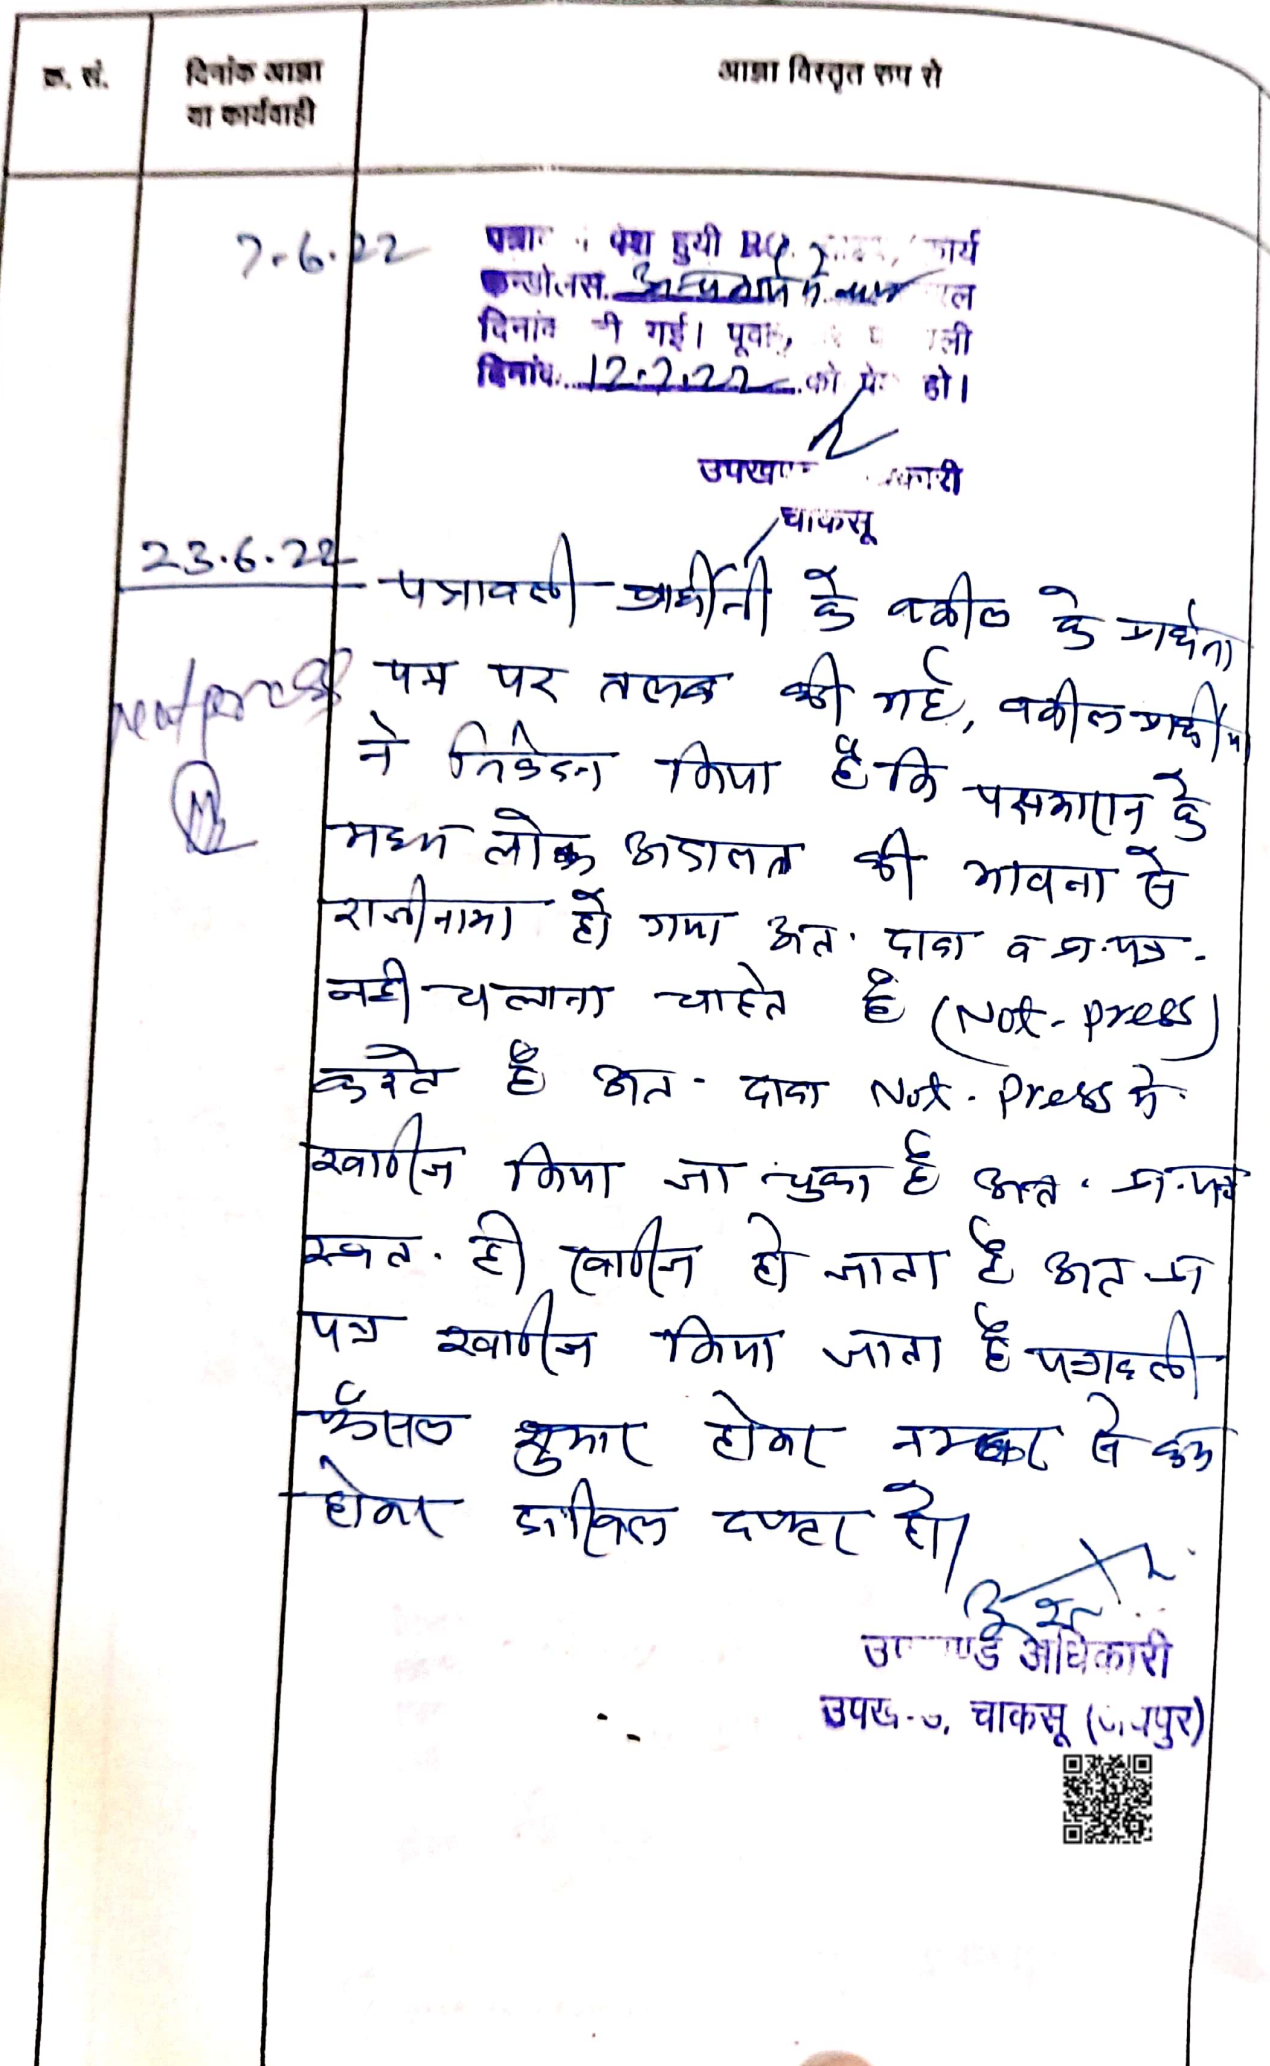 क्र. सं.
दिनांक आज्ञा
या कार्यवाही
आज्ञा विस्तृत रूप से
7.6.22
पेश हुयी कार्य
दिनांक गई।
दिनांक 12.7.22 को हो।
चाकसू
23.6.22
पत्रावली प्रार्थीनी के वकील के प्रार्थना
Not press
पत्र पर तलब की गई, वकील प्रार्थीया
ने निवेदन किया है कि पक्षकारान के
मध्य लोक अदालत की भावना से
राजीनामा हो गया अत. दावा व प्रा.पत्र.
नही चलाना चाहते है (Not-press)
करते है अत. दावा Not. Press मे
खारीज किया जा चुका है अत. प्रा.पत्र
स्वत. ही खारीज हो जाता है अत प्रा
पत्र खारीज किया जाता है पत्रावली
फैसल शुमार होकर नम्बर से कम
होकर दाखिल दफ्तर हो।
अधिकारी
चाकसू